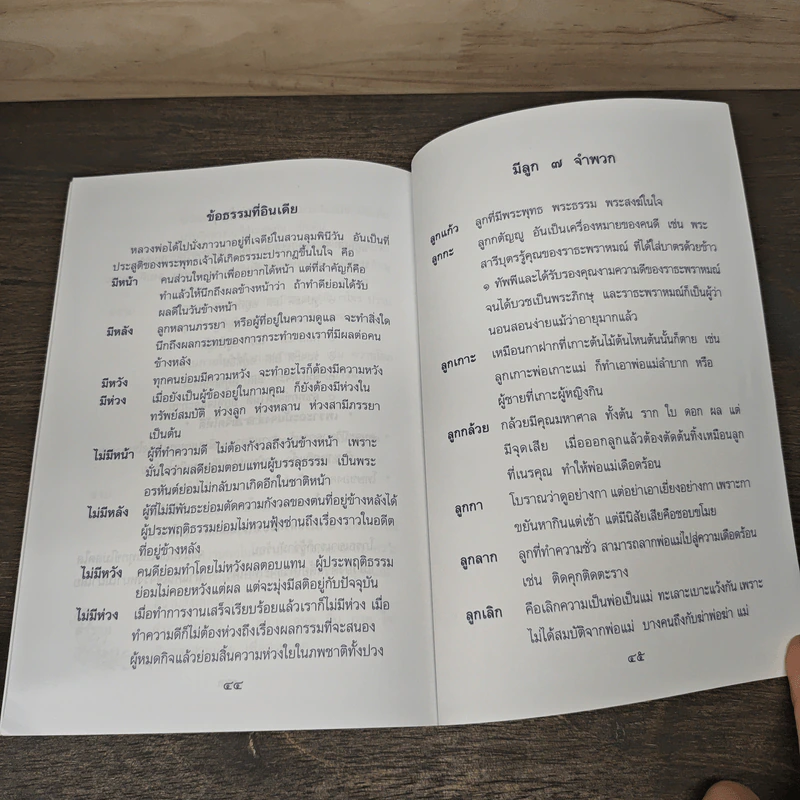 ข้อธรรมที่อินเดีย
หลวงพ่อได้ไปนั่งภาวนาอยู่ที่เจดีย์ในสวนลุมพินีวัน อันเป็นที่
ประสูติของพระพุทธเจ้าได้เกิดธรรมะปรากฏขึ้นในใจ คือ
มีหน้า คนส่วนใหญ่ทำเพื่ออยากได้หน้า แต่ที่สำคัญก็คือ
ทำแล้วให้นึกถึงผลข้างหน้าว่า ถ้าทำดีย่อมได้รับ
ผลดีในวันข้างหน้า
มีหลัง ลูกหลานภรรยา หรือผู้ที่อยู่ในความดูแล จะทำสิ่งใด
นึกถึงผลกระทบของการกระทำของเราที่มีผลต่อคน
ข้างหลัง
มีหวัง ทุกคนย่อมมีความหวัง จะทำอะไรก็ต้องมีความหวัง
มีห่วง เมื่อยังเป็นผู้ข้องอยู่ในกามคุณ ก็ยังต้องมีห่วงใน
ทรัพย์สมบัติ ห่วงลูก ห่วงหลาน ห่วงสามีภรรยา
เป็นต้น
ไม่มีหน้า ผู้ที่ทำความดี ไม่ต้องกังวลถึงวันข้างหน้า เพราะ
มั่นใจว่าผลดีย่อมตอบแทนผู้บรรลุธรรม เป็นพระ
อรหันต์ย่อมไม่กลับมาเกิดอีกในชาติหน้า
ไม่มีหลัง ผู้ที่ไม่มีพันธะย่อมตัดความกังวลของตนที่อยู่ข้างหลังได้
ผู้ประพฤติธรรมย่อมไม่หวนฟุ้งซ่านถึงเรื่องราวในอดีต
ที่อยู่ข้างหลัง
ไม่มีหวัง คนดีย่อมทำโดยไม่หวังผลตอบแทน ผู้ประพฤติธรรม
ย่อมไม่คอยหวังแต่ผล แต่จะมุ่งมีสติอยู่กับปัจจุบัน
ไม่มีห่วง เมื่อทำการงานเสร็จเรียบร้อยแล้วเราก็ไม่มีห่วง เมื่อ
ทำความดีก็ไม่ต้องห่วงถึงเรื่องผลกรรมที่จะสนอง
ผู้หมดกิจแล้วย่อมสิ้นความห่วงใยในภพชาติทั้งปวง
๔๔
มีลูก ๗ จำพวก
ลูกแก้ว ลูกที่มีพระพุทธ พระธรรม พระสงฆ์ในใจ
ลูกกะ ลูกกตัญญู อันเป็นเครื่องหมายของคนดี เช่น พระ
สารีบุตรรู้คุณของราธะพราหมณ์ ที่ได้ใส่บาตรด้วยข้าว
๑ ทัพพีและได้รับรองคุณงามความดีของราธะพราหมณ์
จนได้บวชเป็นพระภิกษุ และราธะพราหมณ์ก็เป็นผู้ว่า
นอนสอนง่ายแม้ว่าอายุมากแล้ว
ลูกเกาะ เหมือนกาฝากที่เกาะต้นไม้ต้นไหนต้นนั้นก็ตาย เช่น
ลูกเกาะพ่อเกาะแม่ ก็ทำเอาพ่อแม่ลำบาก หรือ
ผู้ชายที่เกาะผู้หญิงกิน
ลูกกล้วย กล้วยมีคุณมหาศาล ทั้งต้น ราก ใบ ดอก ผล แต่
มีจุดเสีย เมื่อออกลูกแล้วต้องตัดต้นทิ้งเหมือนลูก
ที่เนรคุณ ทำให้พ่อแม่เดือดร้อน
ลูกกา โบราณว่าดูอย่างกา แต่อย่าเอาเยี่ยงอย่างกา เพราะกา
ขยันหากินแต่เช้า แต่มีนิสัยเสียคือชอบขโมย
ลูกลาก ลูกที่ทำความชั่ว สามารถลากพ่อแม่ไปสู่ความเดือดร้อน
เช่น ติดคุกติดตะราง
ลูกเลิก คือเลิกความเป็นพ่อเป็นแม่ ทะเลาะเบาะแว้งกัน เพราะ
ไม่ได้สมบัติจากพ่อแม่ บางคนถึงกับฆ่าพ่อฆ่า แม่
๔๕